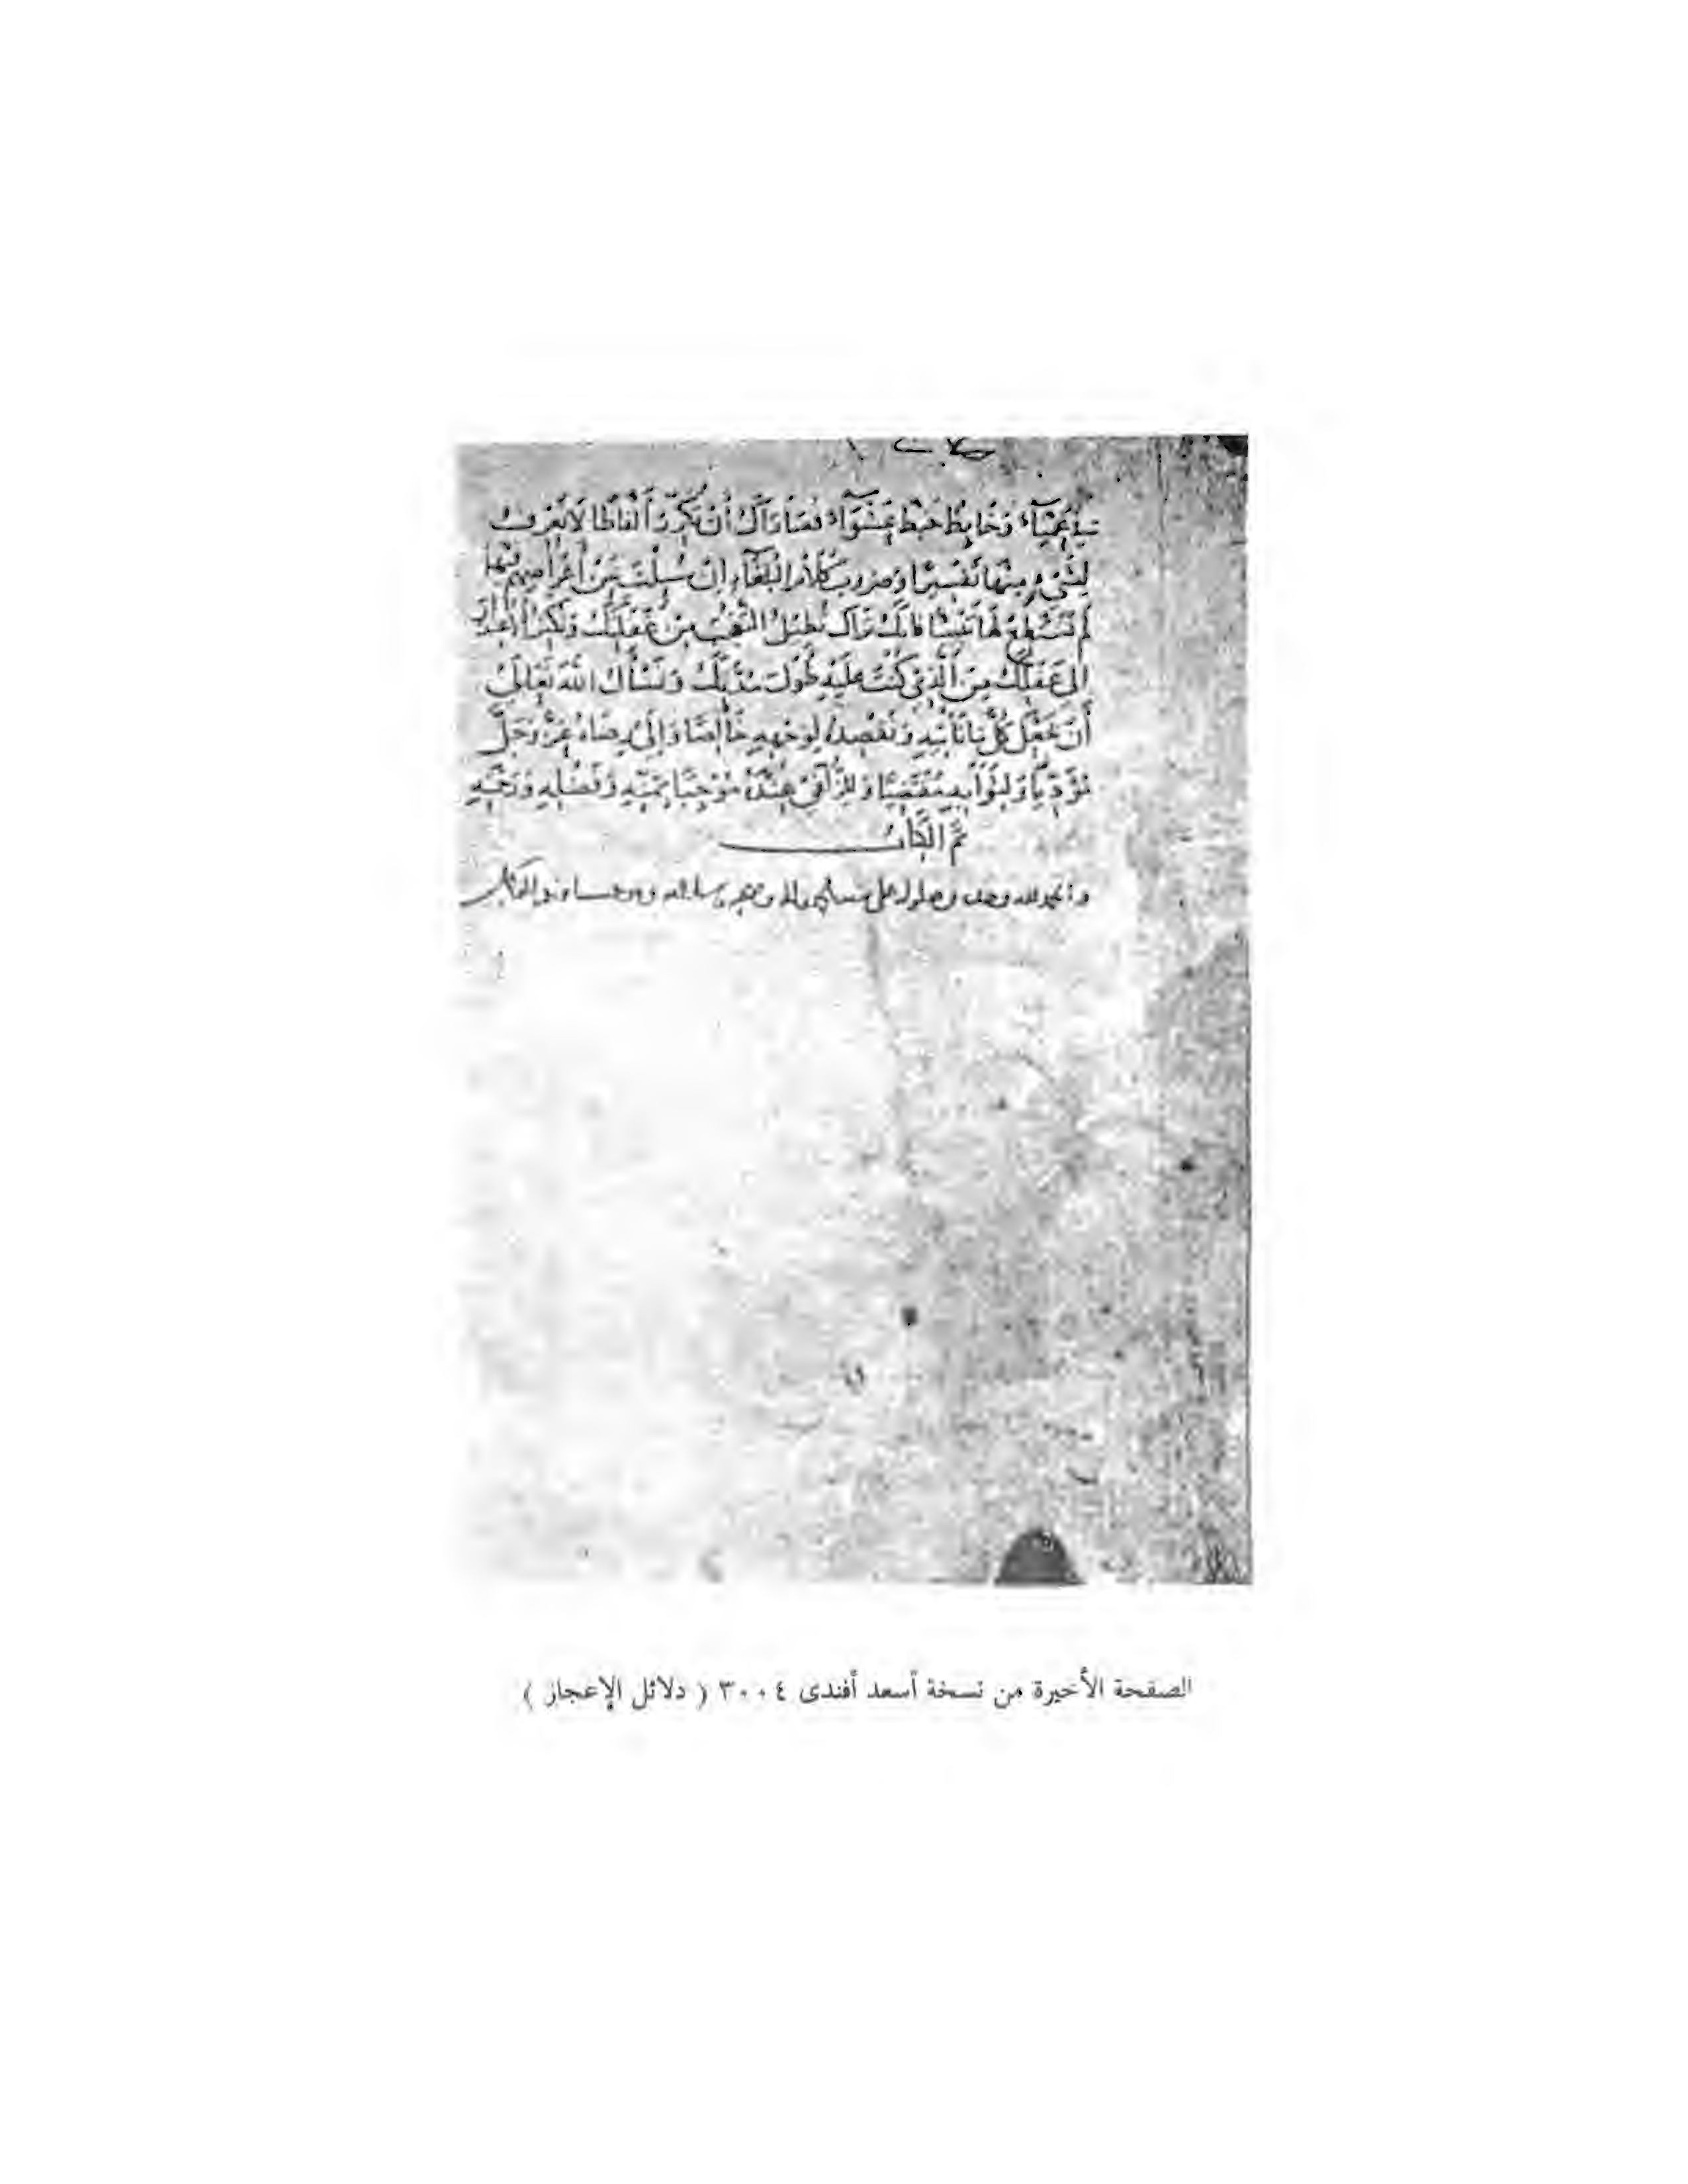 في عَمْيَاءَ وَخَابِطٌ خَبْطَ عَشْوَآءَ قُصَارَاكَ أَنْ تُكَرِّرَ أَلْفَاظًا لَا تَعْرِفُ
لِشَيْءٍ مِنْهَا تَفْسِيرًا وَضُرُوبَ كَلَامِ الْبُلَغَآءِ إِنْ سُئِلْتَ عَنْ أَغْرَاضِهِمْ فِيهَا
لَمْ تَسْتَطِعْ لَهَا تَبْيِينًا فَإِنَّكَ تَرَاكَ تُطِيلُ التَّعَجُّبَ مِنْ غَفْلَتِكَ وَتُكْثِرُ الاعْتِذَارَ
إِلَى عَقْلِكَ مِنَ الَّذِي كُنْتَ عَلَيْهِ طُولَ مُدَّتِكَ وَنَسْأَلُ اللهَ تَعَالَى
أَنْ يَجْعَلَ كُلَّ مَا نَأْتِيهِ وَنَقْصِدُهُ لِوَجْهِهِ خَالِصًا وَإِلَى رِضَاهُ عَزَّ وَجَلَّ
مُؤَدِّيًا وَلِثَوَابِهِ مُقْتَضِيًا وَلِلزُّلْفَى عِنْدَهُ مُوجِبًا بِمَنِّهِ وَفَضْلِهِ وَرَحْمَتِهِ
تَمَّ الْكِتَابُ
والحمد لله وحده على محمد وآله وصحبه وهو حسبنا ونعم الوكيل
الصفحة الأخيرة من نسخة أسعد أفندى ٣٠٠٤ ( دلائل الإعجاز )